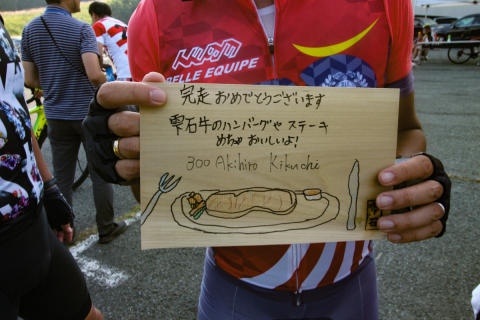 BELLE EQUIPE
完走 おめでとうございます
雫石牛のハンバーグや ステーキ
めちゃ おいしいよ!
300 Akihiro Kikuchi